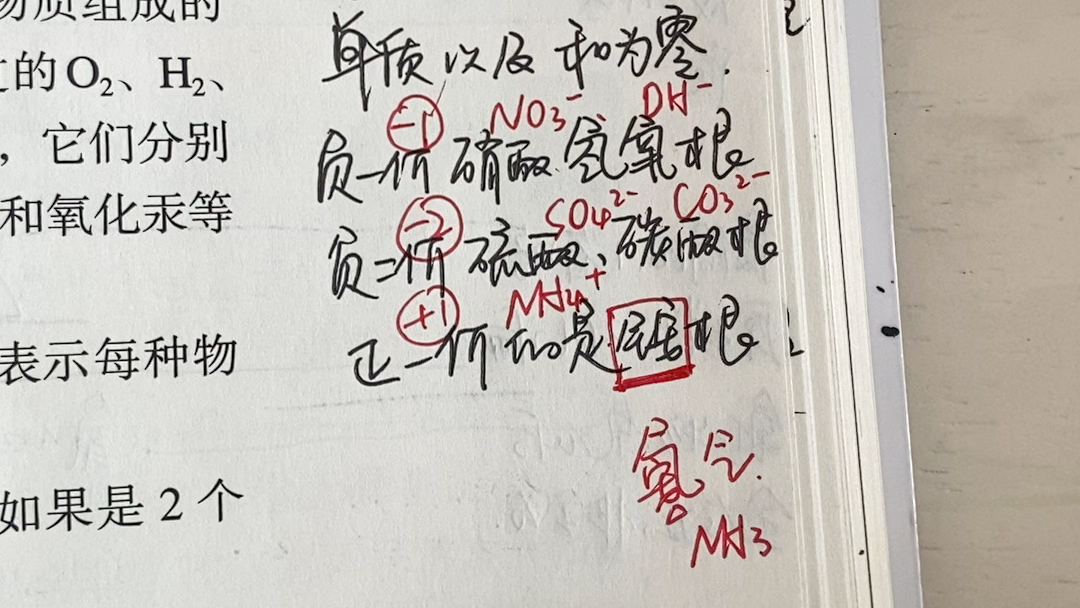 物质组成的
的O₂、H₂、
，它们分别
和氧化汞等
表示每种物
如果是 2 个
单质以及 和为零.
-1 NO₃⁻ OH⁻
负一价 硝酸.氢氧根
-2 SO₄²⁻ CO₃²⁻
负二价 硫酸、碳酸根
+1 NH₄⁺
正一价的是铵根
氨气.
NH₃